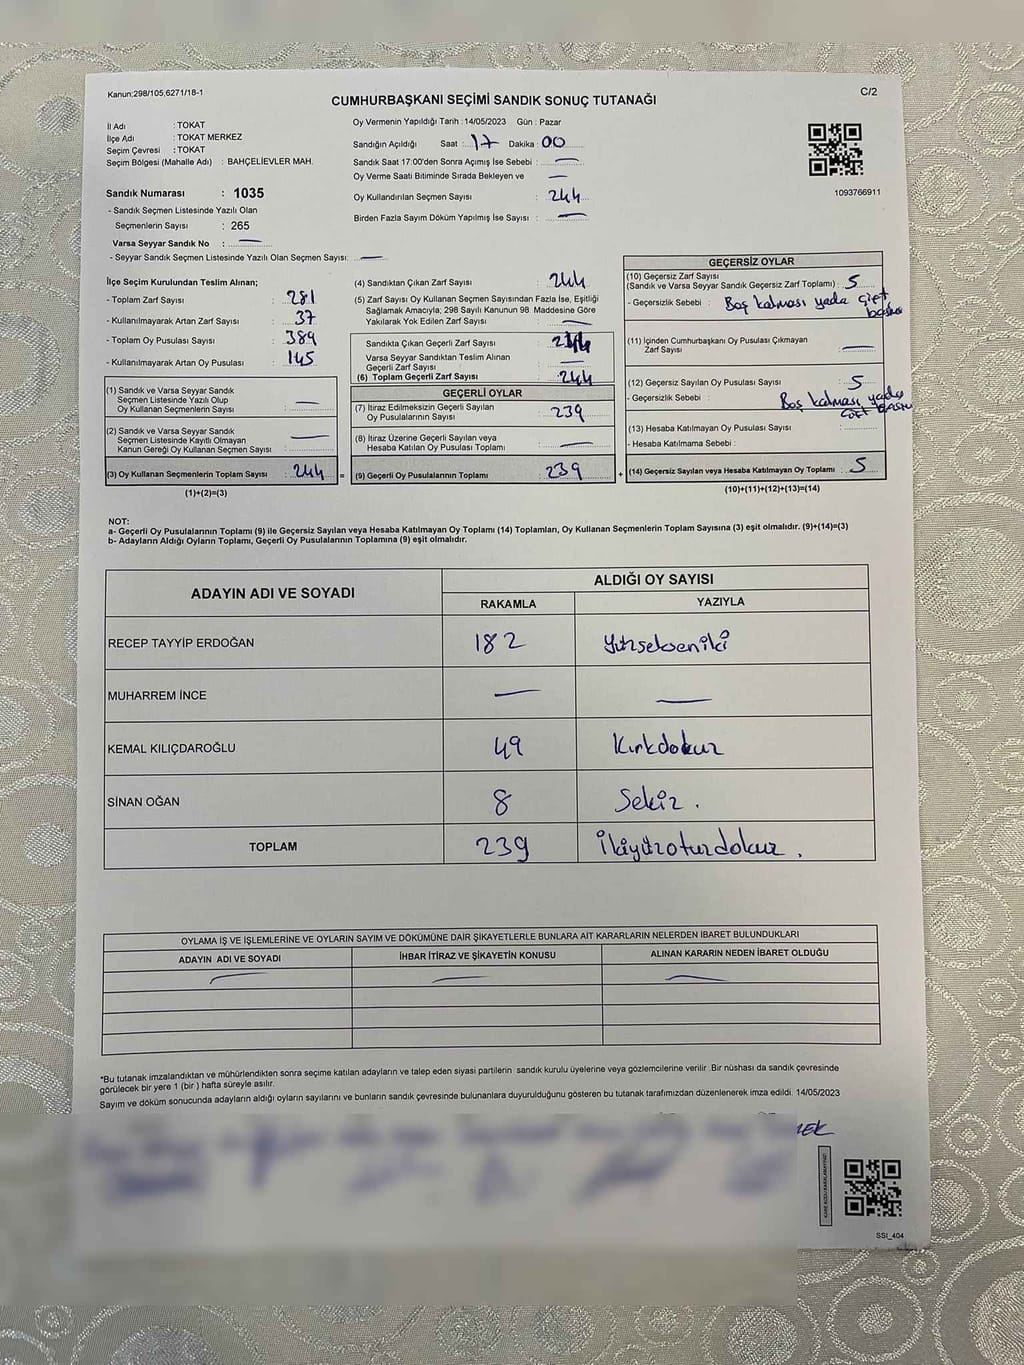 Kanun;298/105;6271/18-1
C/2
CUMHURBAŞKANI SEÇİMİ SANDIK SONUÇ TUTANAĞI
İl Adı : TOKAT
İlçe Adı : TOKAT MERKEZ
Seçim Çevresi : TOKAT
Seçim Bölgesi (Mahalle Adı) : BAHÇELİEVLER MAH.
Sandık Numarası : 1035
- Sandık Seçmen Listesinde Yazılı Olan
Seçmenlerin Sayısı : 265
Varsa Seyyar Sandık No : —
- Seyyar Sandık Seçmen Listesinde Yazılı Olan Seçmen Sayısı: —
Oy Vermenin Yapıldığı Tarih : 14/05/2023 Gün : Pazar
Sandığın Açıldığı Saat : 17 Dakika : 00
Sandık Saat 17:00'den Sonra Açımış İse Sebebi : —
Oy Verme Saati Bitiminde Sırada Bekleyen ve —
Oy Kullandırılan Seçmen Sayısı : 244
Birden Fazla Sayım Döküm Yapılmış İse Sayısı : —
1093766911
İlçe Seçim Kurulundan Teslim Alınan;
- Toplam Zarf Sayısı : 281
- Kullanılmayarak Artan Zarf Sayısı : 37
- Toplam Oy Pusulası Sayısı : 389
- Kullanılmayarak Artan Oy Pusulası : 145
(1) Sandık ve Varsa Seyyar Sandık
Seçmen Listesinde Yazılı Olup
Oy Kullanan Seçmenlerin Sayısı : —
(2) Sandık ve Varsa Seyyar Sandık
Seçmen Listesinde Kayıtlı Olmayan
Kanun Gereği Oy Kullanan Seçmen Sayısı : —
(3) Oy Kullanan Seçmenlerin Toplam Sayısı : 244 =
(1)+(2)=(3)
(4) Sandıktan Çıkan Zarf Sayısı : 244
(5) Zarf Sayısı Oy Kullanan Seçmen Sayısından Fazla İse, Eşitliği
Sağlamak Amacıyla, 298 Sayılı Kanunun 98. Maddesine Göre
Yakılarak Yok Edilen Zarf Sayısı : —
Sandıkta Çıkan Geçerli Zarf Sayısı : 244
Varsa Seyyar Sandıktan Teslim Alınan
Geçerli Zarf Sayısı : —
(6) Toplam Geçerli Zarf Sayısı : 244
GEÇERLİ OYLAR
(7) İtiraz Edilmeksizin Geçerli Sayılan
Oy Pusulalarının Sayısı : 239
(8) İtiraz Üzerine Geçerli Sayılan veya
Hesaba Katılan Oy Pusulası Toplamı : —
(9) Geçerli Oy Pusulalarının Toplamı : 239 +
GEÇERSİZ OYLAR
(10) Geçersiz Zarf Sayısı
(Sandık ve Varsa Seyyar Sandık Geçersiz Zarf Toplamı) : 5
- Geçersizlik Sebebi : Boş kalması yada çift
baskı
(11) İçinden Cumhurbaşkanı Oy Pusulası Çıkmayan
Zarf Sayısı : —
(12) Geçersiz Sayılan Oy Pusulası Sayısı : 5
- Geçersizlik Sebebi : Boş kalması yada
çift
(13) Hesaba Katılmayan Oy Pusulası Sayısı :
- Hesaba Katılmama Sebebi :
(14) Geçersiz Sayılan veya Hesaba Katılmayan Oy Toplamı : 5
(10)+(11)+(12)+(13)=(14)
NOT:
a- Geçerli Oy Pusulalarının Toplamı (9) ile Geçersiz Sayılan veya Hesaba Katılmayan Oy Toplamı (14) Toplamları, Oy Kullanan Seçmenlerin Toplam Sayısına (3) eşit olmalıdır. (9)+(14)=(3)
b- Adayların Aldığı Oyların Toplamı, Geçerli Oy Pusulalarının Toplamına (9) eşit olmalıdır.
ADAYIN ADI VE SOYADI ALDIĞI OY SAYISI
RAKAMLA YAZIYLA
RECEP TAYYİP ERDOĞAN 182 Yüzsekseniki
MUHARREM İNCE — —
KEMAL KILIÇDAROĞLU 49 Kırkdokuz
SİNAN OĞAN 8 Sekiz .
TOPLAM 239 İkiyüzotuzdokuz .
OYLAMA İŞ VE İŞLEMLERİNE VE OYLARIN SAYIM VE DÖKÜMÜNE DAİR ŞİKAYETLERLE BUNLARA AİT KARARLARIN NELERDEN İBARET BULUNDUKLARI
ADAYIN ADI VE SOYADI İHBAR İTİRAZ VE ŞİKAYETİN KONUSU ALINAN KARARIN NEDEN İBARET OLDUĞU
— — —
*Bu tutanak imzalandıktan ve mühürlendikten sonra seçime katılan adayların ve talep eden siyasi partilerin sandık kurulu üyelerine veya gözlemcilerine verilir. Bir nüshası da sandık çevresinde
görülecek bir yere 1 (bir ) hafta süreyle asılır.
Sayım ve döküm sonucunda adayların aldığı oyların sayılarını ve bunların sandık çevresinde bulunanlara duyurulduğunu gösteren bu tutanak tarafımızdan düzenlenerek imza edildi. 14/05/2023
SSI_404